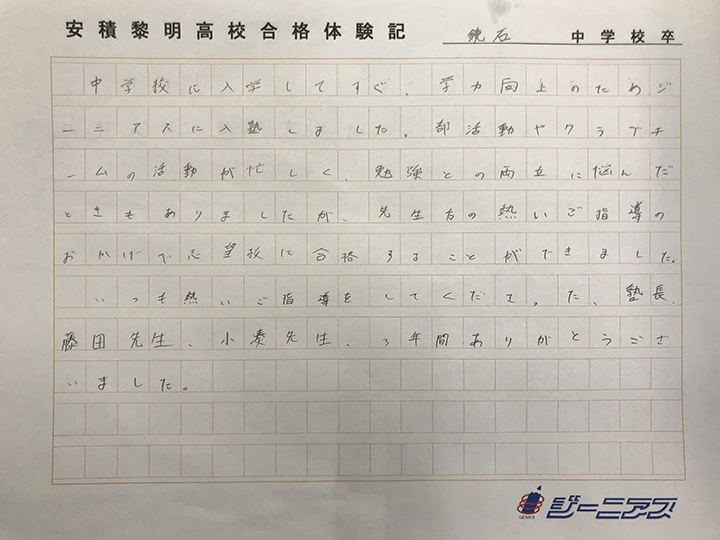 安積黎明高校合格体験記 鏡石 中学校卒
中学校に入学してすぐ、学力向上のためジ
ーニアスに入塾しました。部活動やクラブチ
ームの活動が忙しく、勉強との両立に悩んだ
ときもありましたが、先生方の熱いご指導の
おかげで志望校に合格することができました。
いつも熱いご指導をしてくださった、塾長、
藤田先生、小湊先生、3年間ありがとうござ
いました。
GENIUS ジーニアス